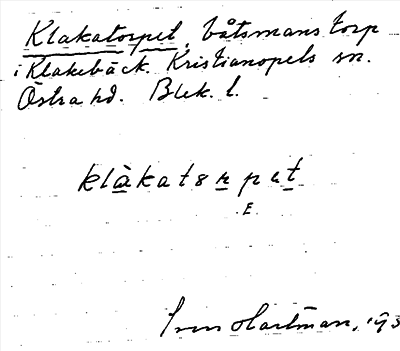 Klakatorpet, båtsmanstorp
i Klakebäck. Kristianopels sn.
Östra hd. Blek. l.
klàkatɘrpɘt
E.
Sven Hartman, 193